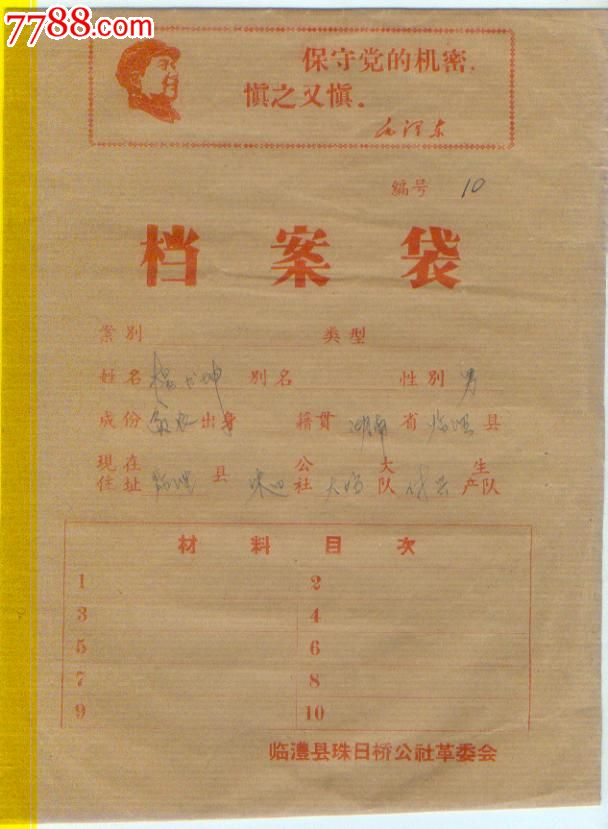 7788.com
保守党的机密,
慎之又慎.
毛泽东
编号 10
档案袋
案别 类型
姓名 别名 性别 男
成份 贫农 出身 籍贯 湖南 省 临澧 县
现在住址 临澧 县 珠日 公社 大队 生产队
材料目次
1 2
3 4
5 6
7 8
9 10
临澧县珠日桥公社革委会